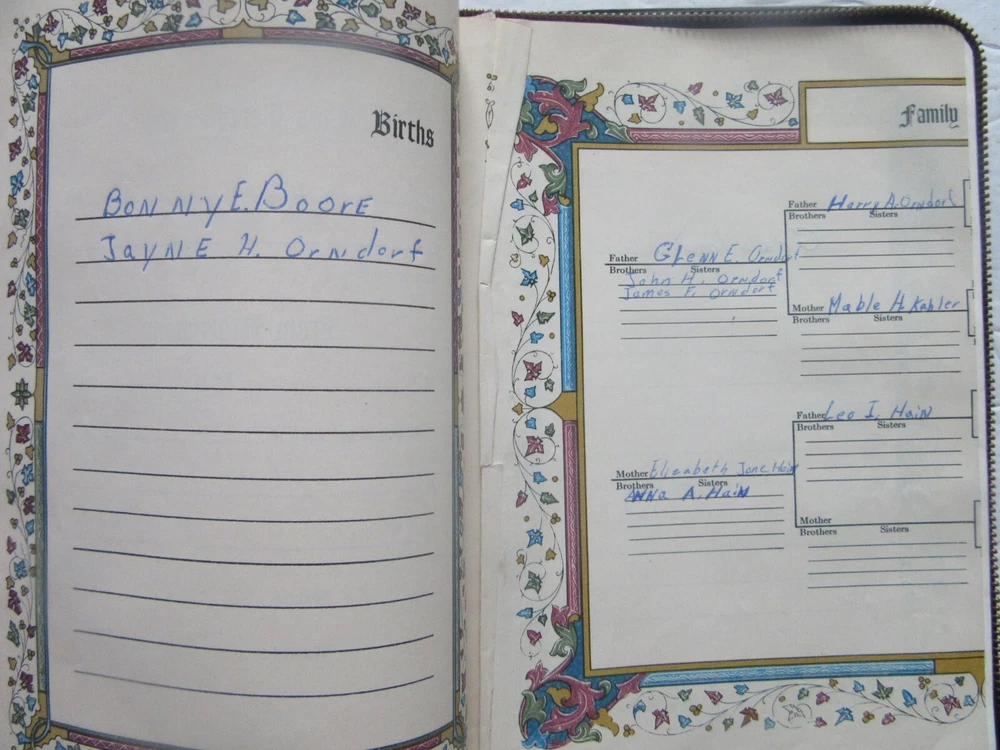 Births
BONNY E. BOORE
JAYNE H. Orndorf
Family
Father Harry A. Orndorf
Brothers Sisters
Father GLENN E. Orndorf
Brothers Sisters
John H. Orndorf
James F. Orndorf
Mother Mable H. Kahler
Brothers Sisters
Father Leo I. Hain
Brothers Sisters
Mother Elizabeth Jane Hain
Brothers Sisters
ANNA A. HAIN
Mother
Brothers Sisters